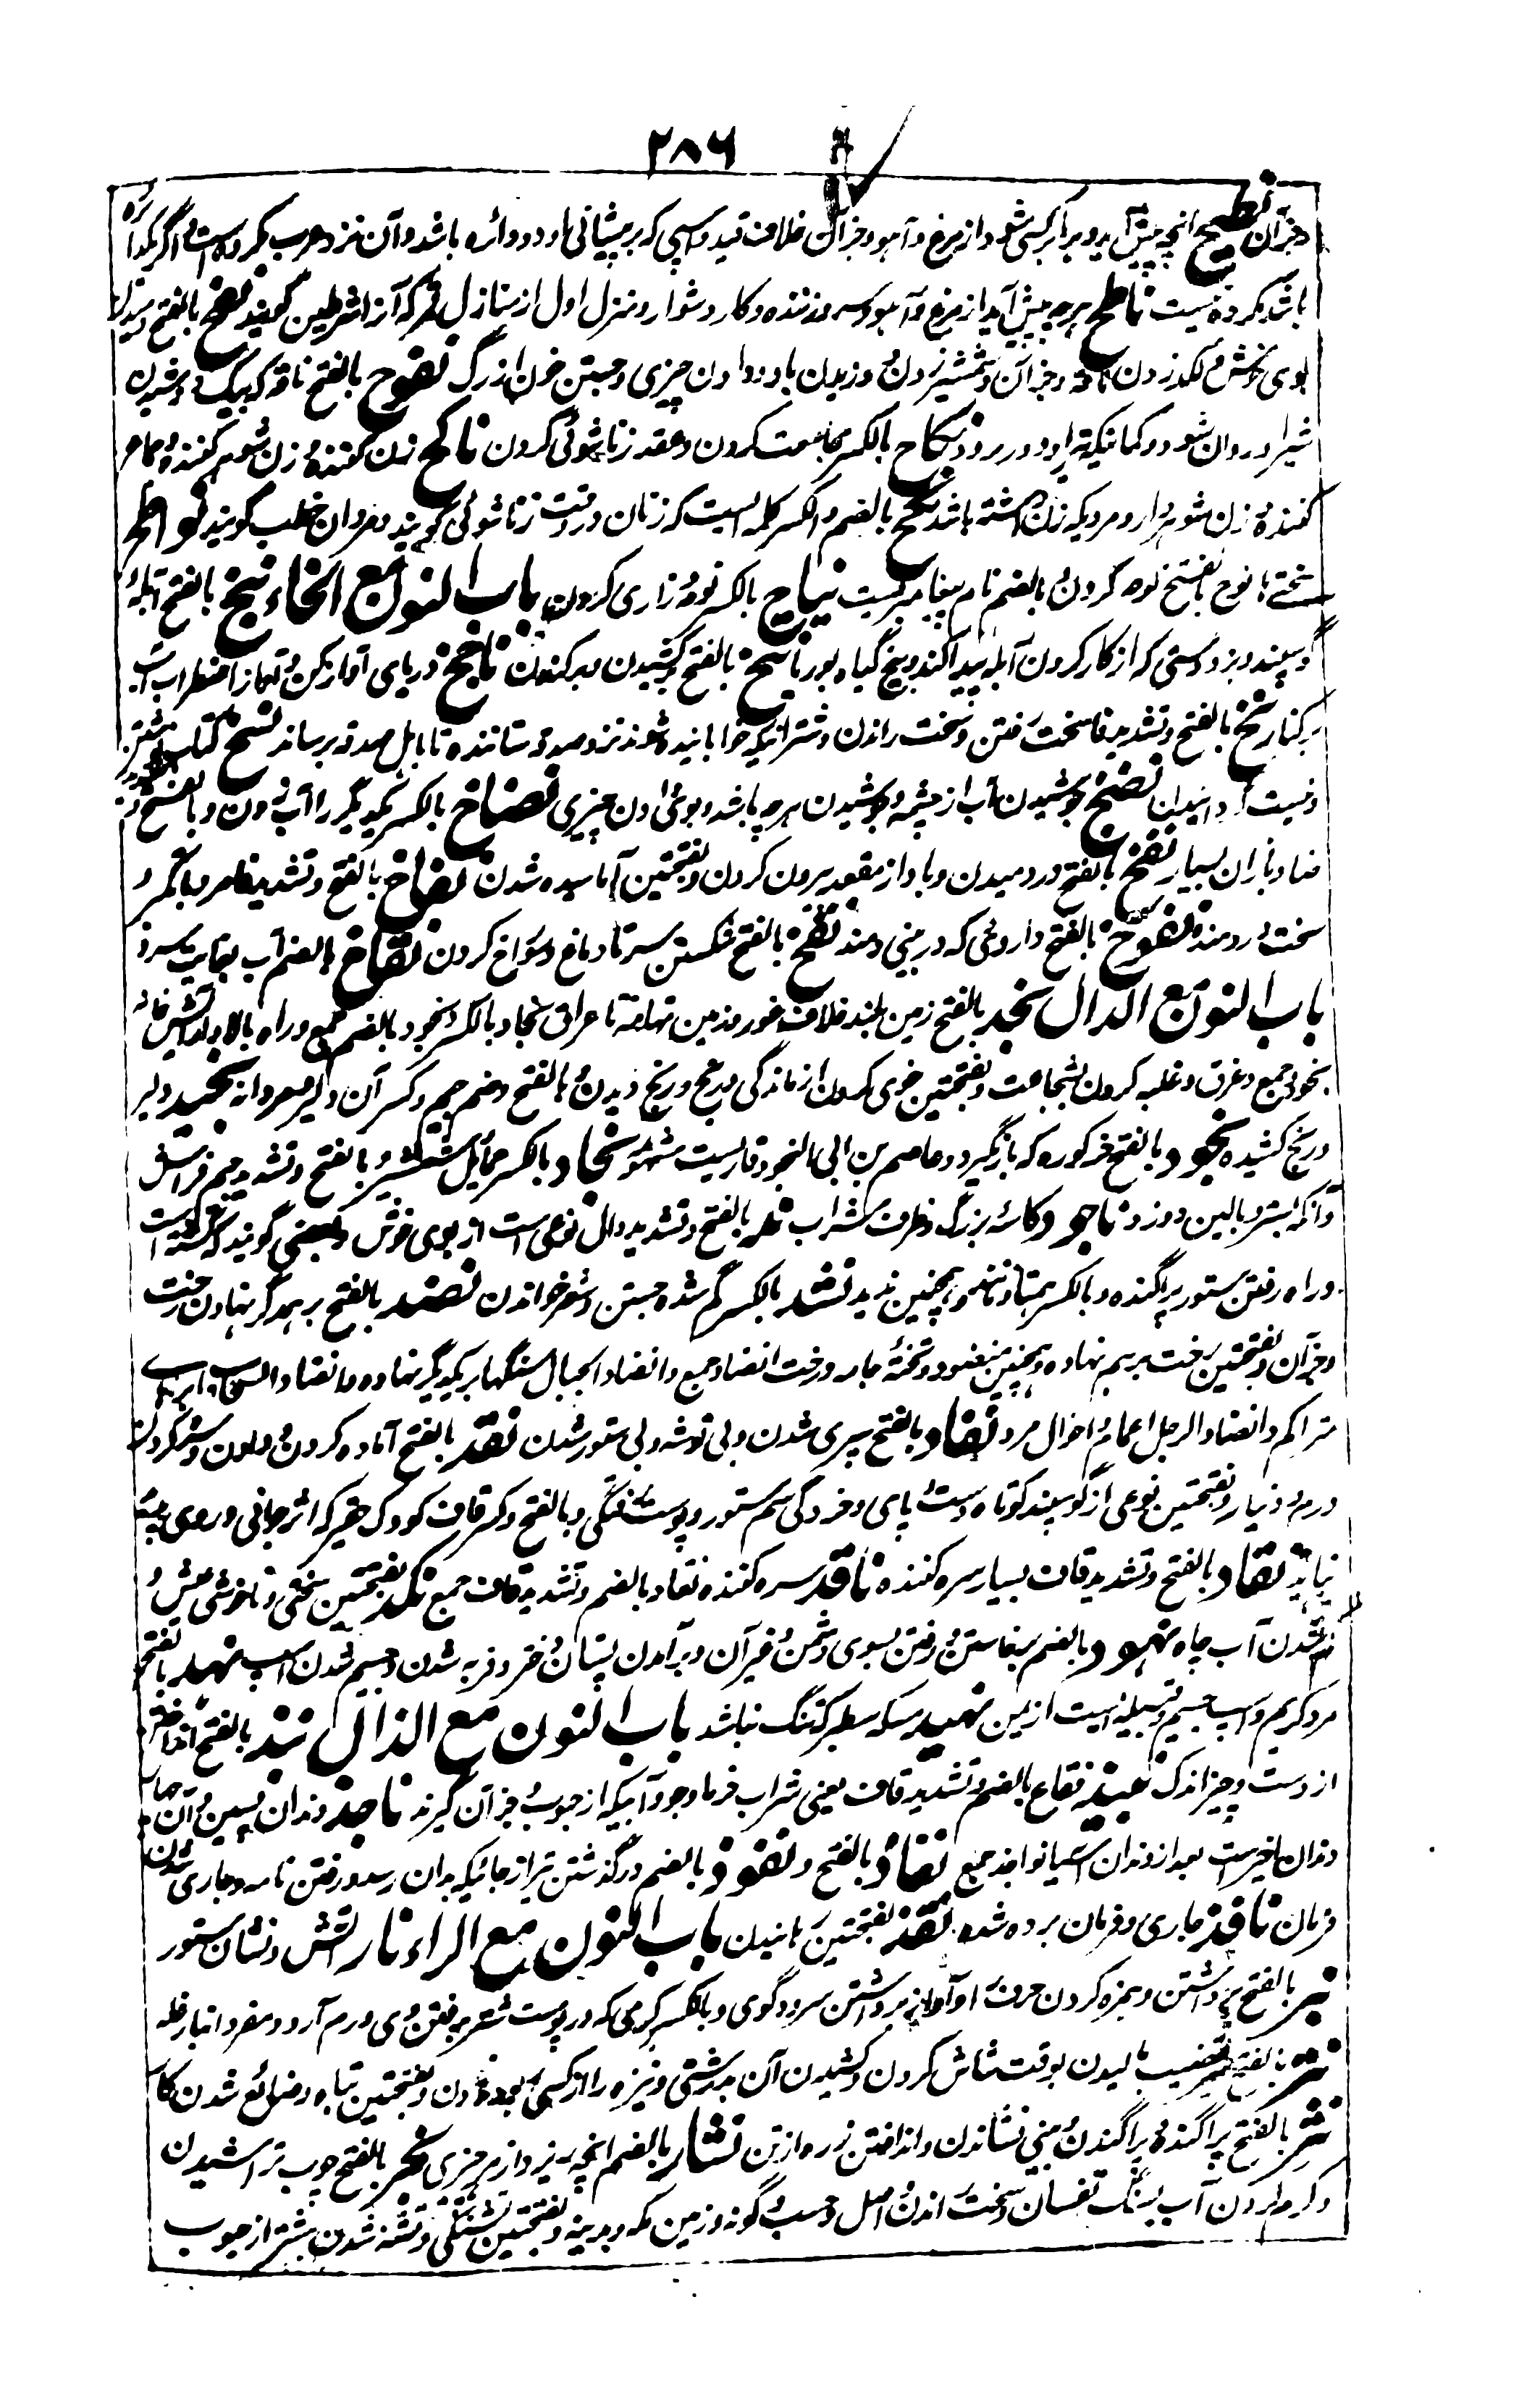 ۲۸۶
وجز آن نطیح انچه پیش آید و برابر کسی شود از مرغ و آهو و جز آن خلاف قعید و اسپی که بر پیشانی او دو دائره باشد و آن نزد عرب مکروه است و اگر یکدائره
باشد مکروه نیست ناطح هرچه پیش آید از مرغ و آهو و سرو زننده و کار دشوار و منزل اول از منازل قمر که آنرا شرطین گویند نفح بالفتح دمیدن
بوی خوش و لگد زدن ناقه و جز آن و شمشیر زدن و وزیدن باد و دادن چیزی و جستن خون از رگ نفوح بالفتح ناقه که بیک دوشیدن
شیر او روان شود و کمانیکه تیر او دور رود نکاح بالکسر مجامعت کردن و عقد زناشوئی کردن ناکح زن کننده و زن شوهر کننده و جماع
کننده و زن شوهردار و مردیکه زن داشته باشد نکح بالضم و الکسر کلمه ایست که زنان در وقت زناشوئی گویند و مردان خطب گویند نوائح
تختے ها نوح بالفتح نوحه کردن و بالضم نام پیغامبریست نیاح بالکسر نوحه و زاری کردن باب النون مع الخاء نبخ بالفتح آبله
گوسپند و بز و دستی که از کار کردن آبله پیدا کند و بیخ گیاه بور ناتخ بالفتح بر کشیدن و برکندن ناجخ دریای آواز کن و آواز اضطراب آب
بر کنار نخ بالفتح و تشدید خا سخت رفتن و سخت راندن و شترانیکه خوابانیده شوند نزد صدقه ستاننده تا بابل صدقه برساند نسخ کتاب نوشتن
و نیست گردانیدن نضخ جوشیدن آب از چشمه و جوشیدن هرچه باشد و بوی دادن چیزی نضاخ بالکسر یکدیگر را آب زدن و بالفتح و تشدید
ضاد باران بسیار نفخ بالفتح در دمیدن و باد از مقعد بیرون کردن و بفتحتین آماسیده شدن نفاخ بالفتح و تشدید فا مرد باکبر و
سخت در دمنده نفوخ بالفتح داروئی که در بینی دمند نقخ بالفتح شکستن سر تا دماغ و سوراخ کردن نقاخ بالضم آب بغایت سرد
باب النون مع الدال نجد بالفتح زمین بلند خلاف غور و زمین تهامه تا عراق نجاد بالکسر و نجود بالضم جمع و راه بالا و آرایش خانه
نجود جمع و عرق و غلبه کردن بشجاعت و بفتحتین خوی کردن از ماندگی و رنج و رنج دیدن و بالفتح و ضم جیم و کسر آن دلیر مردانه نجید دلیر
و رنج کشیده نجود بالفتح خر کوره که باز نگیرد و عاصم بن ابی النجود قاریست مشهور نجاد بالکسر حمایل شمشیر و بالفتح و تشدید جیم فراش
و آنکه بستر و بالین دوزد ناجود کاسه بزرگ و ظرف شراب ند بالفتح و تشدید دال نوعی است از بوی خوش و بعضی گویند که عنبر است
و راه رفتن ستور پراگنده و بالکسر همتا و مانند و همچنین ندید نشد بالکسر گم شده جستن و شعر خواندن نضد بالفتح بر همدگر نهادن رخت
و جز آن و بفتحتین رخت بر هم نهاده و همچنین منضود و تختهٔ جامه و رخت انضاد جمع و انضاد الجبال سنگها بر یکدیگر نهاده و انضاد السحاب ابرهای
متراکم و انضاد الرجل اعمام و اخوال مرد نفاد بالفتح سپری شدن و بی توشه و بی ستور شدن نقد بالفتح آماده کردن و دادن و سره کردن
درم و دینار و بفتحتین نوعی از گوسپند کوتاه دست و پای و خوردگی سم ستور و پوست فتگی و بالفتح و کسر قاف کودک حقیر که اثر جوانی در وی پدید
نیاید نقاد بالفتح و تشدید قاف بسیار سره کننده ناقد سره کننده نقاد بالضم و تشدید قاف جمع نکد بفتحتین سختی و ناخوشی عیش و
کم شدن آب چاه نهود بالضم برخاستن و رفتن بسوی دشمن و غیر آن و برآمدن پستان دختر و فربه شدن و جسیم شدن اسپ نهد بالفتح
مرد کریم و اسپ جسیم و قبیله ایست از یمن نهید مسکه سطبر که تنگ نباشد باب النون مع الذال نبذ بالفتح انداختن
از دست و چیز اندک نبیذ فقاع بالضم و تشدید قاف یعنی شراب خرما و جو و آبیکه از حبوب و جز آن گیرند ناجذ دندان پسین و آن چهار
دندان اخیرست بعد از دندان آسیا نواجذ جمع نفاذ بالفتح و نفوذ بالضم درگذشتن تیر از جائیکه بدان رسد و رفتن نامه و جاری شدن
فرمان نافذ جاری و فرمان برده شده نقذ بفتحتین رهانیدن باب النون مع الراء نار آتش و نشان ستور
نبر بالفتح برداشتن و همزه کردن حرف و آواز برداشتن سرود گوی و بالکسر کرمی که در پوست شتر بر فتن وی ورم آرد و مفرد انبار غله
نتر بالفتح قضیب مالیدن بوقت شاش کردن و کشیدن آن بدرشتی و نیزه را از کسی ربودن و بفتحتین تباه و ضایع شدن کار
نثر بالفتح پراگنده و پراگندن و بینی نشاندن و انداختن زره از تن نثار بالضم انچه بریزد از هر چیزی نجر بالفتح چوب تراشیدن
و گرم کردن آب بسنگ تفسان و سخت راندن و اصل و حسب و گونه و زمین مکه و مدینه و بفتحتین تشنگی و تشنه شدن شتر از حبوب